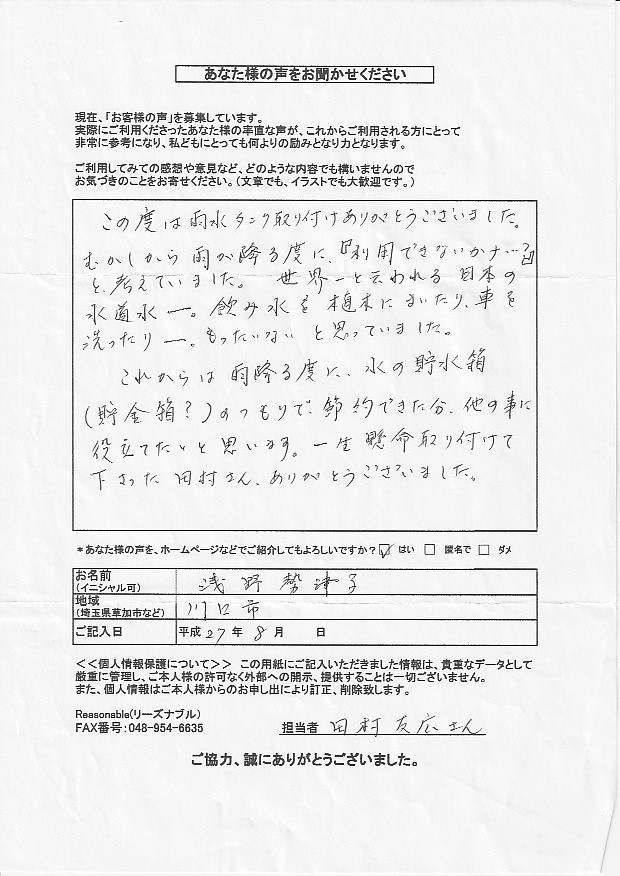 あなた様の声をお聞かせください
現在、「お客様の声」を募集しています。
実際にご利用くださったあなた様の率直な声が、これからご利用される方にとって
非常に参考になり、私どもにとっても何よりの励みとなり力となります。
ご利用してみての感想や意見など、どのような内容でも構いませんので
お気づきのことをお寄せください。（文章でも、イラストでも大歓迎です。）
この度は雨水タンク取り付けありがとうございました。
むかしから雨が降る度に、『利用できないかナ…?』
と、考えていました。 世界一と云われる日本の
水道水ー。飲み水を植木にまいたり、車を
洗ったりー。もったいないと思っていました。
これからは雨降る度に、水の貯水箱
(貯金箱?)のつもりで、節約できた分、他の事に
役立てたいと思います。一生懸命取り付けて
下さった田村さん、ありがとうございました。
*あなた様の声を、ホームページなどでご紹介してもよろしいですか? ☑ はい □ 匿名で □ ダメ
お名前
(イニシャル可) 浅野勢津子
地域
(埼玉県草加市など) 川口市
ご記入日 平成27年 8月 日
<<個人情報保護について>> この用紙にご記入いただきました情報は、貴重なデータとして
厳重に管理し、ご本人様の許可なく外部への開示、提供することは一切ございません。
また、個人情報はご本人様からのお申し出により訂正、削除致します。
Reasonable(リーズナブル)
FAX番号:048-954-6635 担当者 田村友広さん
ご協力、誠にありがとうございました。